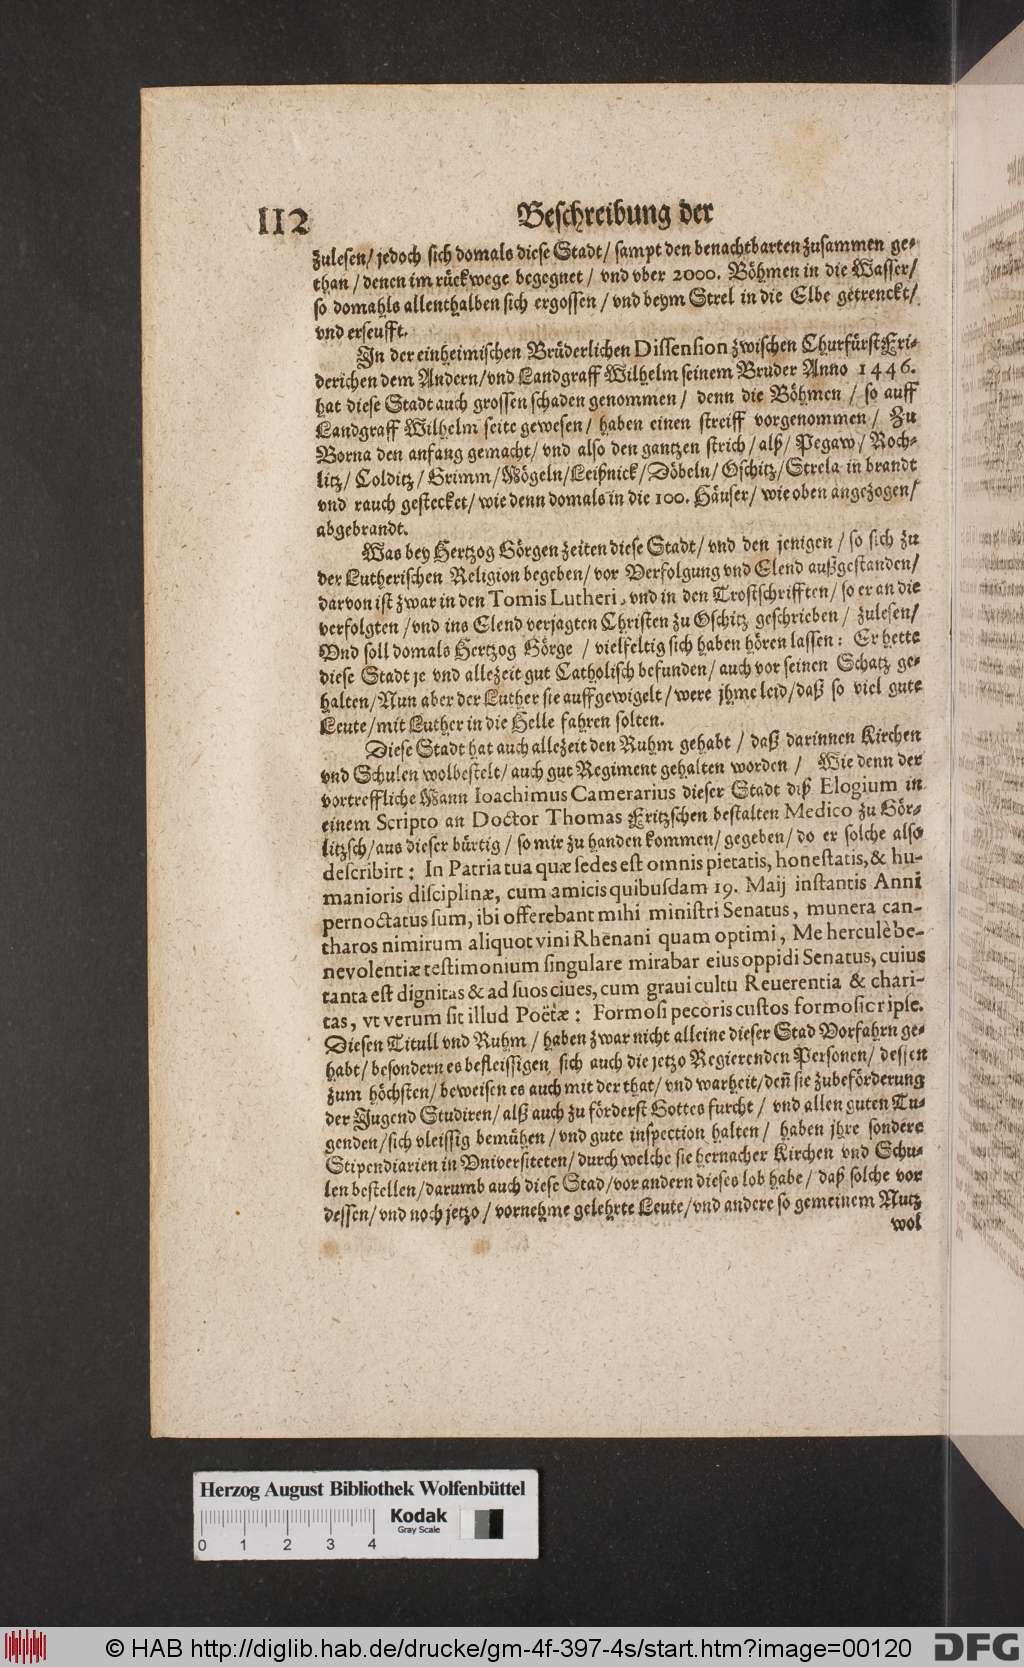 112 Beschreibung der
zulesen/ jedoch sich domals diese Stadt/ sampt den benachtbarten zusammen ge-
than/ denen im rückwege begegnet/ vnd vber 2000. Böhmen in die Wasser/
so domahls allenthalben sich ergossen/ vnd beym Strel in die Elbe getrenckt/
vnd erseufft.
In der einheimischen Brüderlichen Dissension zwischen Churfürst Fri-
derichen dem Andern/ vnd Landgraff Wilhelm seinem Bruder Anno 1446.
hat diese Stadt auch grossen schaden genommen/ denn die Böhmen/ so auff
Landgraff Wilhelm seite gewesen/ haben einen streiff vorgenommen/ Zu
Borna den anfang gemacht/ vnd also den gantzen strich/ alß/ Pegaw/ Roch-
litz/ Colditz/ Grimm/ Mögeln/ Leißnick/ Döbeln/ Oschitz/ Strela in brandt
vnd rauch gestecket/ wie denn domals in die 100. Häuser/ wie oben angezogen/
abgebrandt.
Was bey Hertzog Görgen zeiten diese Stadt/ vnd den jenigen/ so sich zu
der Lutherischen Religion begeben/ vor Verfolgung vnd Elend außgestanden/
darvon ist zwar in den Tomis Lutheri, vnd in den Trostschrifften/ so er an die
verfolgten/ vnd ins Elend verjagten Christen zu Oschitz geschrieben/ zulesen/
Vnd soll domals Hertzog Görge/ vielfeltig sich haben hören lassen: Er hette
diese Stadt je vnd allezeit gut Catholisch befunden/ auch vor seinen Schatz ge-
halten/ Nun aber der Luther sie auffgewigelt/ were jhme leid/ daß so viel gute
Leute/ mit Luther in die Helle fahren solten.
Diese Stadt hat auch allezeit den Ruhm gehabt/ daß darinnen Kirchen
vnd Schulen wolbestelt/ auch gut Regiment gehalten worden/ Wie denn der
vortreffliche Mann Ioachimus Camerarius dieser Stadt diß Elogium in
einem Scripto an Doctor Thomas Fritzschen bestalten Medico zu Gör-
litzsch/ aus dieser bürtig/ so mir zu handen kommen/ gegeben/ do er solche also
describirt: In Patria tua quæ sedes est omnis pietatis, honestatis, & hu-
manioris disciplinæ, cum amicis quibusdam 19. Maij instantis Anni
pernoctatus sum, ibi offerebant mihi ministri Senatus, munera can-
tharos nimirum aliquot vini Rhenani quam optimi, Me herculè be-
nevolentiæ testimonium singulare mirabar eius oppidi Senatus, cuius
tanta est dignitas & ad suos ciues, cum graui cultu Reuerentia & chari-
tas, vt verum sit illud Poëtæ: Formosi pecoris custos formosior ipse.
Diesen Titull vnd Ruhm/ haben zwar nicht alleine dieser Stad Vorfahrn ge-
habt/ besondern es befleissigen sich auch die jetzo Regierenden Personen/ dessen
zum höchsten/ beweisen es auch mit der that/ vnd warheit/ deñ sie zubeförderung
der Jugend Studiren/ alß auch zu förderst Gottes furcht/ vnd allen guten Tu-
genden/ sich vleissig bemühen/ vnd gute inspection halten/ haben jhre sondere
Stipendiarien in Vniversiteten/ durch welche sie hernacher Kirchen vnd Schu-
len bestellen/ darumb auch diese Stad/ vor andern dieses lob habe/ daß solche vor
dessen/ vnd noch jetzo/ vornehme gelehrte Leute/ vnd andere so gemeinem Nutz
wol
Herzog August Bibliothek Wolfenbüttel
Kodak
Gray Scale
0 1 2 3 4
© HAB http://diglib.hab.de/drucke/gm-4f-397-4s/start.htm?image=00120 DFG